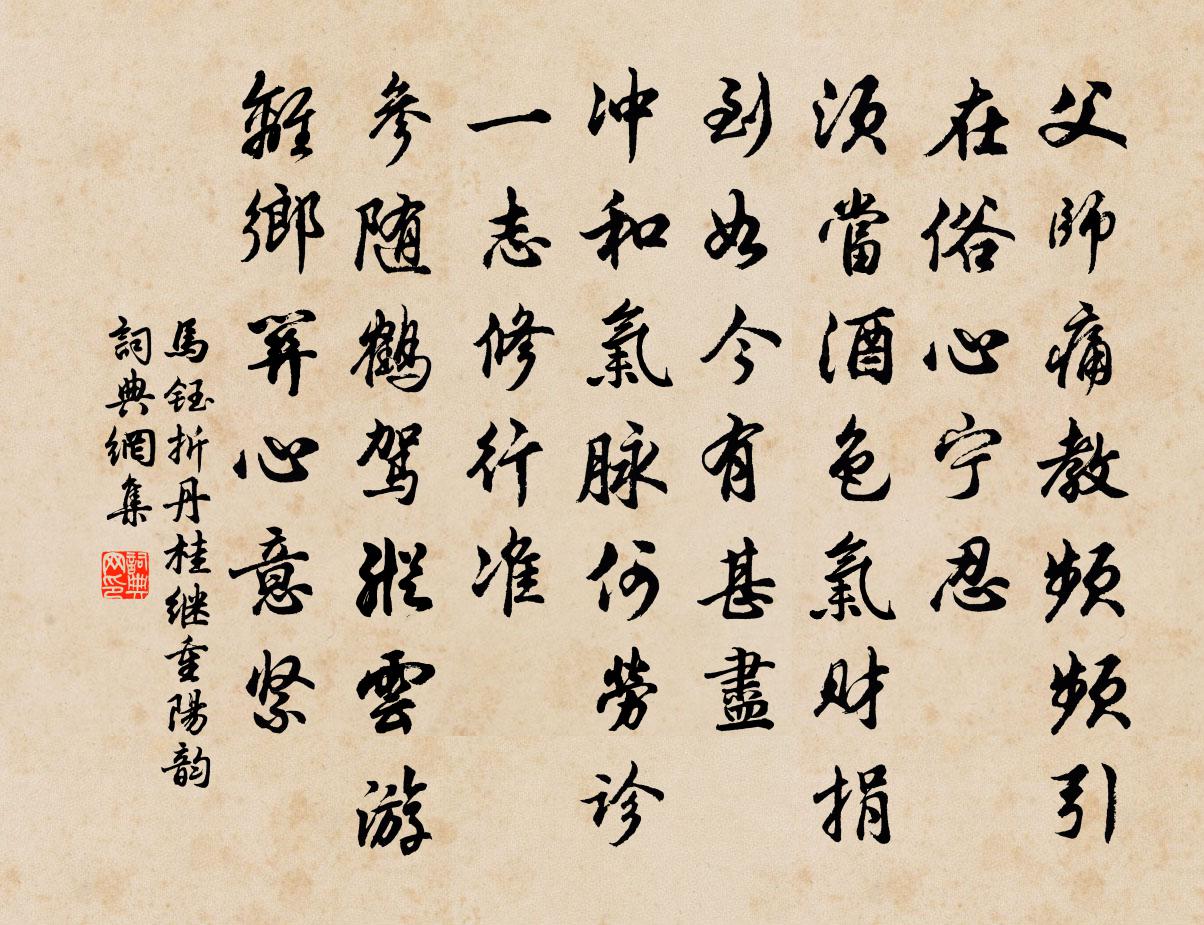 父師痛教頻頻引
在俗心宁忍
須當酒色氣財捐
到如今有甚盡
冲和氣脉何勞診
一志修行准
參随鶴駕縱雲游
離鄉筭心意緊
馬鈺折丹桂继重陽韵
詞典網集
詞典网印